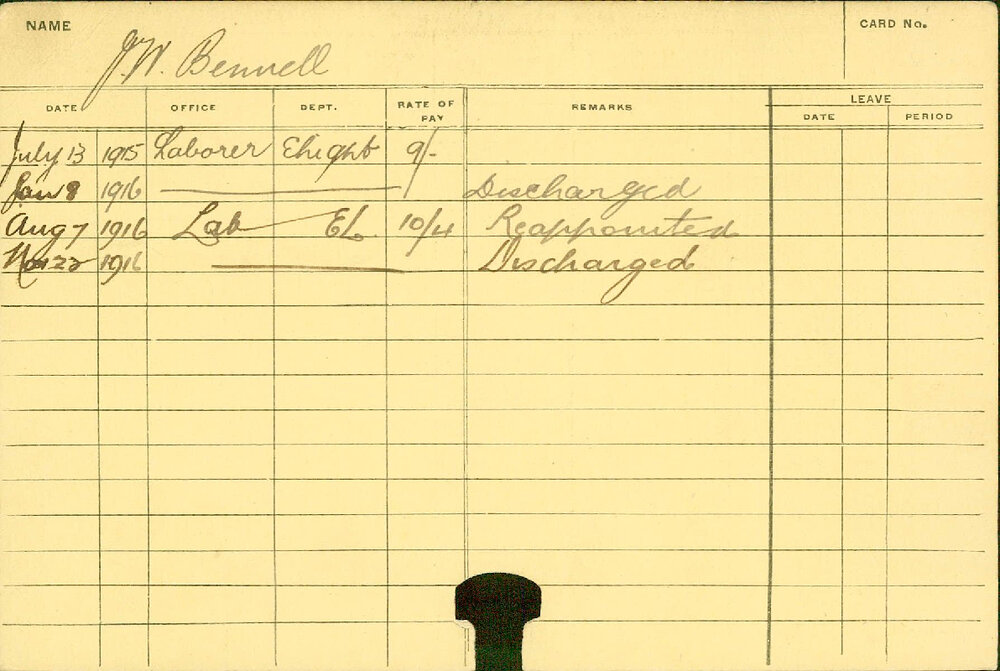 NAME
J.W. Bennell
CARD No.
DATE OFFICE DEPT. RATE OF PAY REMARKS LEAVE
DATE PERIOD
July 13 1915 Laborer Elight 9/-
Jan 8 1916 Discharged
Aug 7 1916 Lab EL. 10/4 Reappointed
Nov 22 1916 Discharged